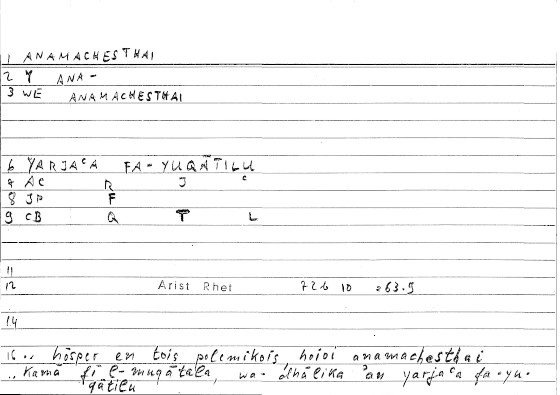 1 ANAMACHESTHAI
2 Y ANA-
3 WE ANAMACHESTHAI
6 YARJAᶜA FA-YUQĀTILU
7 AC R J ᶜ
8 JP F
9 CB Q T L
11
12 Arist Rhet 72b 10 =63.9
14
16 .. hōsper en tois polemikois, hoioi anamachesthai
.. Kamā fī l-muqātala, wa-dhālika ʾan yarjaᶜa fa-yu-
qātilu